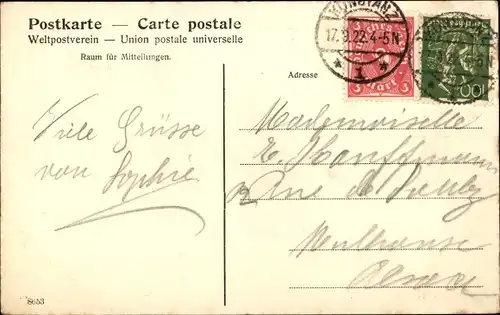 Postkarte — Carte postale
Weltpostverein — Union postale universelle
Raum für Mitteilungen.
Adresse
KONSTANZ
17.9.22.4-5N
1
3 Mark 3
100
Viele Grüsse
von Sophie
Mademoiselle
E. Kauffmann
Rue de
Mulhouse
Alsace
8653